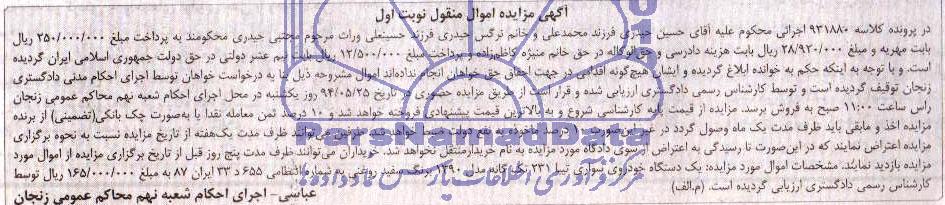 آگهی مزایده اموال منقول نوبت اول
در پرونده کلاسه ۹۳۱۸۸۰ اجرائی محکوم علیه آقای حسین حیدری فرزند محمدعلی و خانم نرگس حیدری فرزند حسینعلی وراث مرحوم مجتبی حیدری محکومند به پرداخت مبلغ ۲۵۰/۰۰۰/۰۰۰ ریال
بابت مهریه و مبلغ ۲۸/۹۲۰/۰۰۰ ریال بابت هزینه دادرسی و حق الوکاله در حق خانم منیژه کاظم‌زاده و پرداخت مبلغ ۱۲/۵۰۰/۰۰۰ ریال بابت نیم عشر دولتی در حق دولت جمهوری اسلامی ایران گردیده
است. و با توجه به اینکه حکم به خوانده ابلاغ گردیده و ایشان هیچ‌گونه اقدامی در جهت احقاق حق خواهان انجام نداده‌اند اموال مشروحه ذیل بنا به درخواست خواهان توسط اجرای احکام مدنی دادگستری
زنجان توقیف گردیده است و توسط کارشناس رسمی دادگستری ارزیابی شده و قرار است از طریق مزایده حضوری در تاریخ ۹۴/۰۵/۲۵ روز یکشنبه در محل اجرای احکام شعبه نهم محاکم عمومی زنجان
راس ساعت ۱۱:۰۰ صبح به فروش برسد. مزایده از قیمت پایه کارشناسی شروع و به بالاترین قیمت پیشنهادی فروخته خواهد شد و ۱۰ درصد ثمن معامله نقدا یا به‌صورت چک بانکی(تضمینی) از برنده
مزایده اخذ و مابقی باید ظرف مدت یک ماه وصول گردد در غیر این‌صورت ۱۰ درصد ماخوذه به نفع دولت ضبط خواهد شد. طرفین می‌توانند ظرف مدت یک‌هفته از تاریخ مزایده نسبت به نحوه برگزاری
مزایده اعتراض نمایند که در این‌صورت تا رسیدگی به اعتراض از سوی دادگاه مورد مزایده به نام خریدار منتقل نخواهد شد. خریداران می‌توانند ظرف مدت پنج روز قبل از تاریخ برگزاری مزایده از اموال مورد
مزایده بازدید نمایند. مشخصات اموال مورد مزایده: یک دستگاه خودروی سواری تیبا ۲۳۱ تک گانه مدل ۱۳۹۰ برنگ سفید روغنی به شماره انتظامی ۶۵۵ د ۳۳ ایران ۸۷ به مبلغ ۱۶۵/۰۰۰/۰۰۰ ریال توسط
کارشناس رسمی دادگستری ارزیابی گردیده است. (م.الف)
عباسی - اجرای احکام شعبه نهم محاکم عمومی زنجان